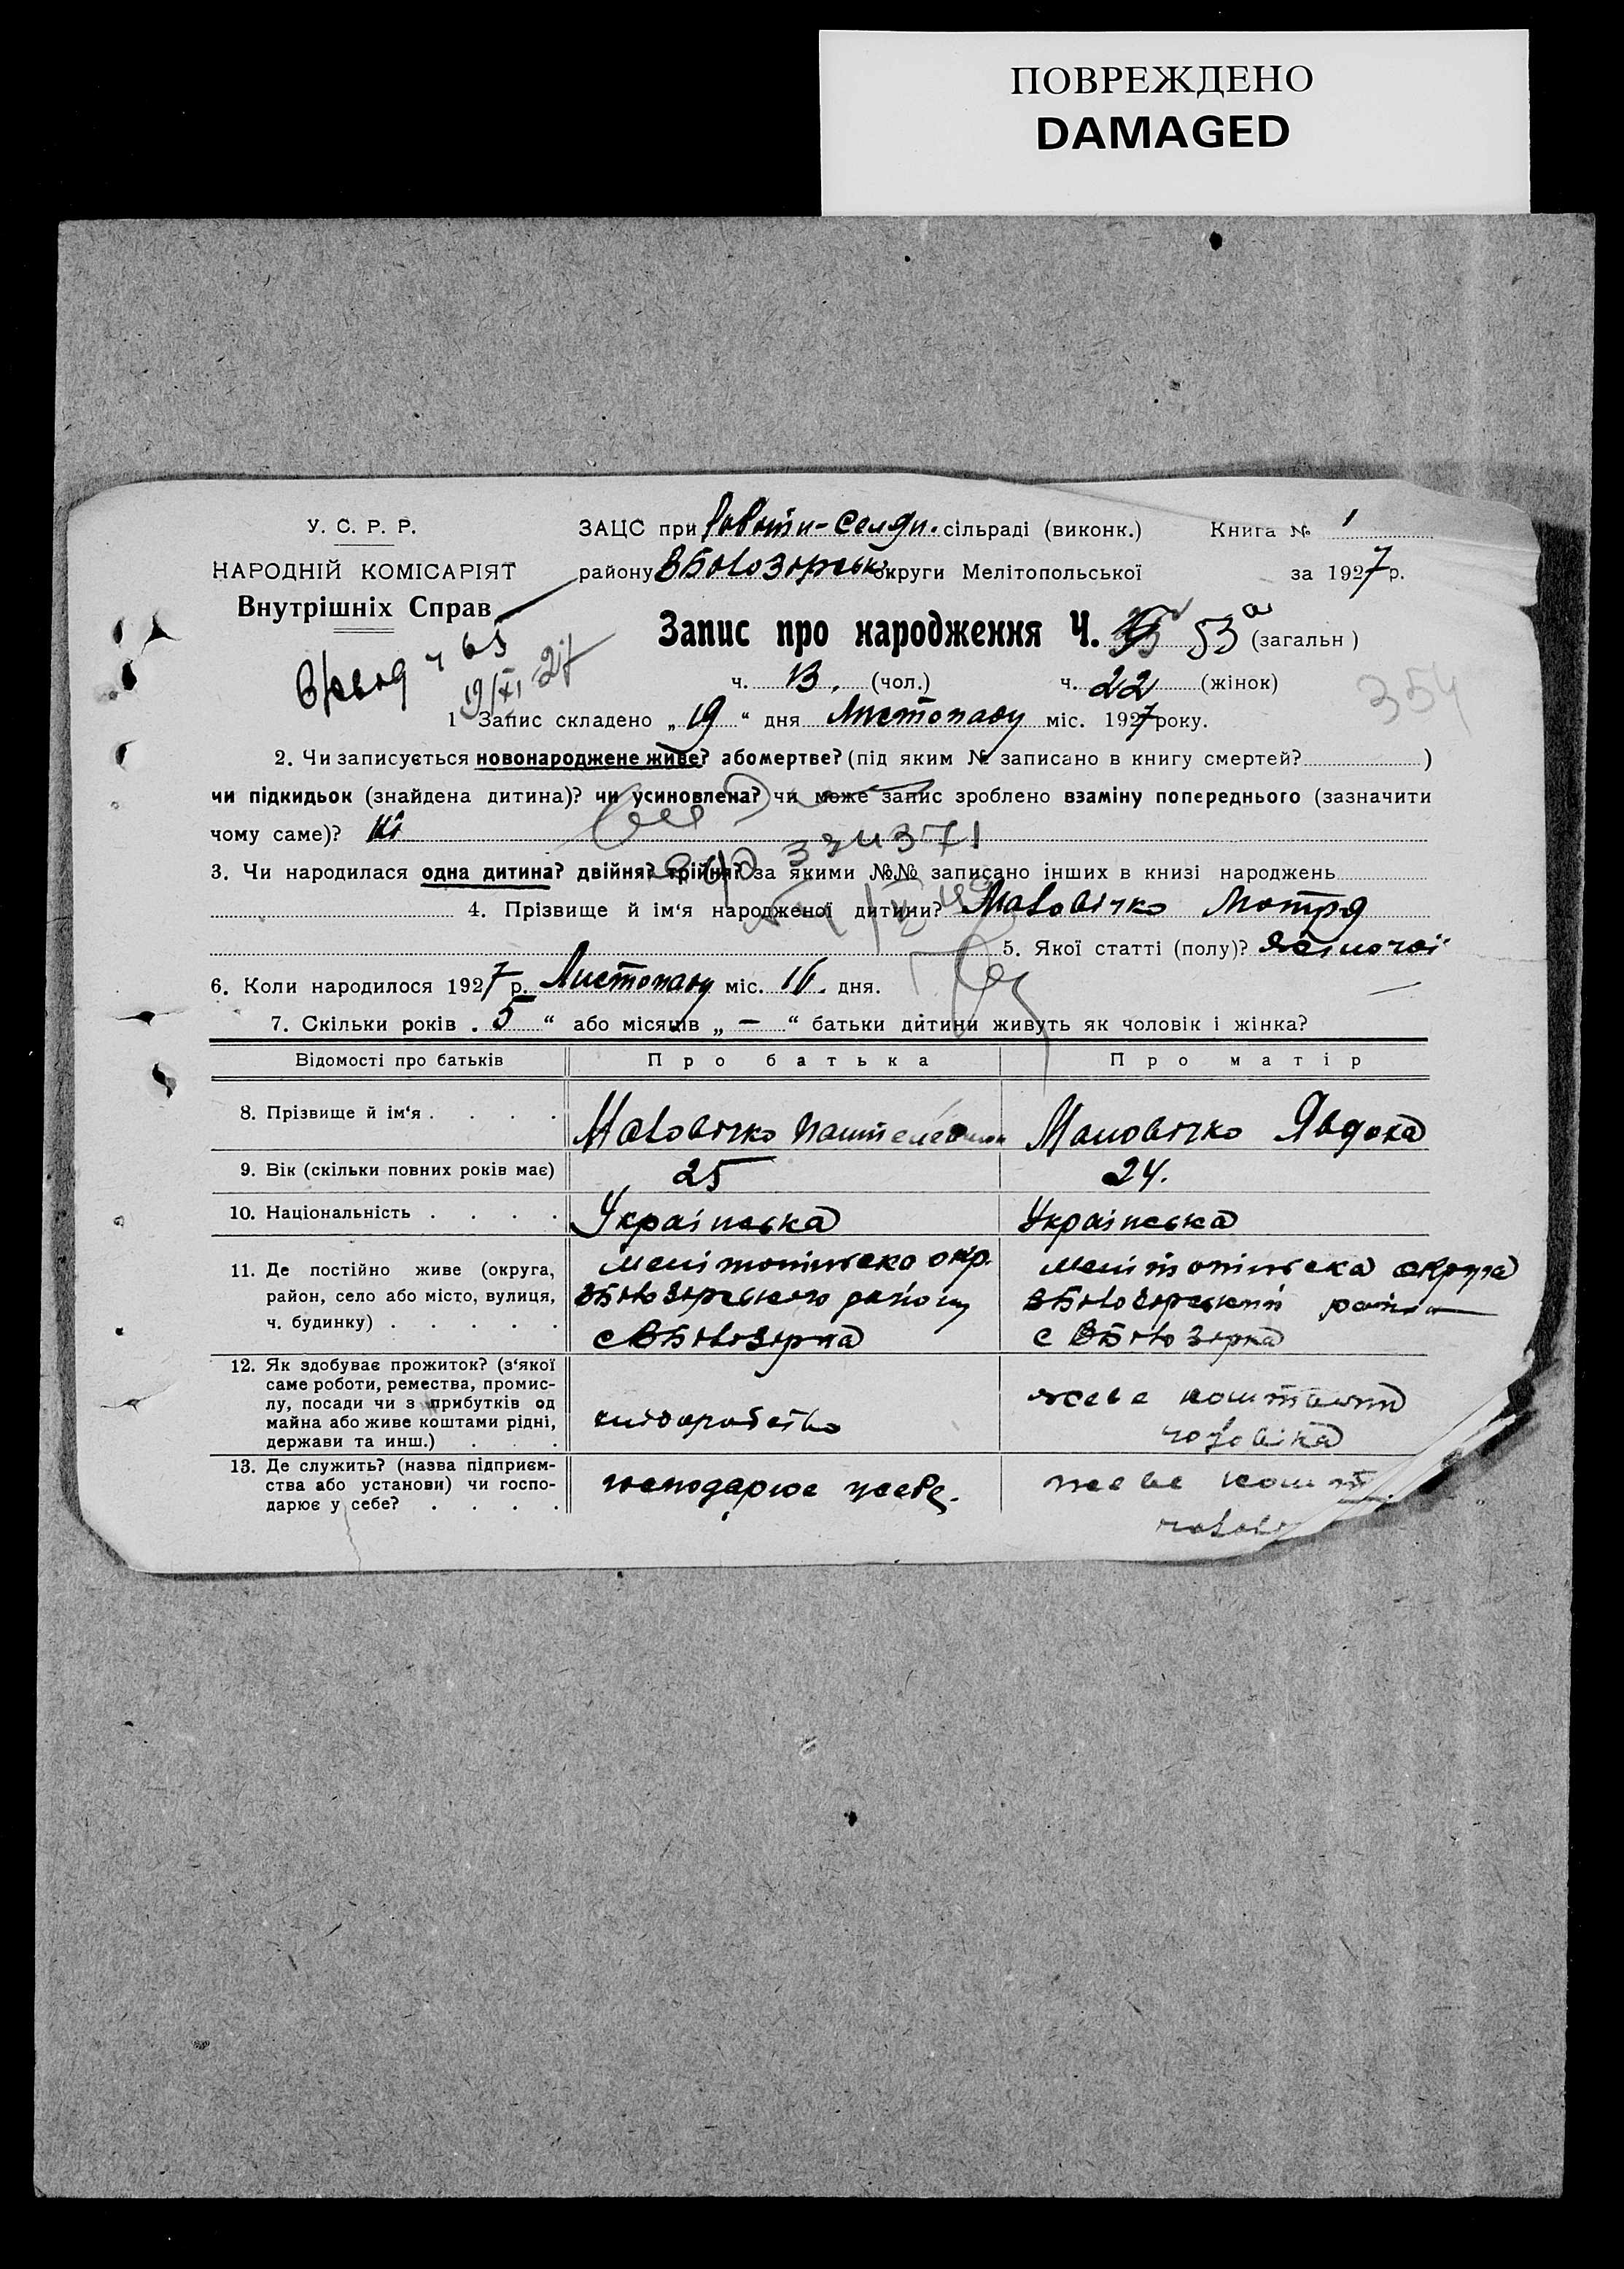 ПОВРЕЖДЕНО
DAMAGED
У. С. Р. Р.
НАРОДНІЙ КОМІСАРІЯТ
Внутрішніх Справ
ЗАЦС при сільраді (виконк.) Книга № 1
району ВБілозірськ округи Мелітопольської за 1927 р.
Запис про народження Ч. 53а (загальн)
ч. 13. (чол.) ч. 22 (жінок)
19/XI 27
354
1 Запис складено „19“ дня Листопаду міс. 1927 року.
2. Чи записується новонароджене живе? або мертве? (під яким № записано в книгу смертей? )
чи підкидьок (знайдена дитина)? чи усиновлена? чи може запис зроблено взаміну попереднього (зазначити
чому саме)? Ні
3. Чи народилася одна дитина? двійня? трійня? за якими №№ записано інших в книзі народжень
4. Прізвище й ім‘я народженої дитини? Маловічко Мотря
5. Якої статті (полу)? жіночої
6. Коли народилося 1927 р. Листопаду міс. 16. дня.
7. Скільки років „5“ або місяців „—“ батьки дитини живуть як чоловік і жінка?
Відомості про батьків Про батька Про матір
8. Прізвище й ім‘я . . . . Маловічко Маловічко Явдоха
9. Вік (скільки повних років має) 25 24.
10. Національність . . . . Українська Українська
11. Де постійно живе (округа, район, село або місто, вулиця, ч. будинку) . . . . .
Мелітопільска окр.
ВБілозірського району
с ВБілозірка
Мелітопільска округа
ВБілозірський район
с ВБілозірка
12. Як здобуває прожиток? (з‘якої
саме роботи, ремества, промис-
лу, посади чи з прибутків од
майна або живе коштами рідні,
держави та инш.) . . .
хліборобство
живе коштами
чоловіка
13. Де служить? (назва підприєм-
ства або установи) чи госпо-
дарює у себе? . . . .
господарює у себе.
живе кошт